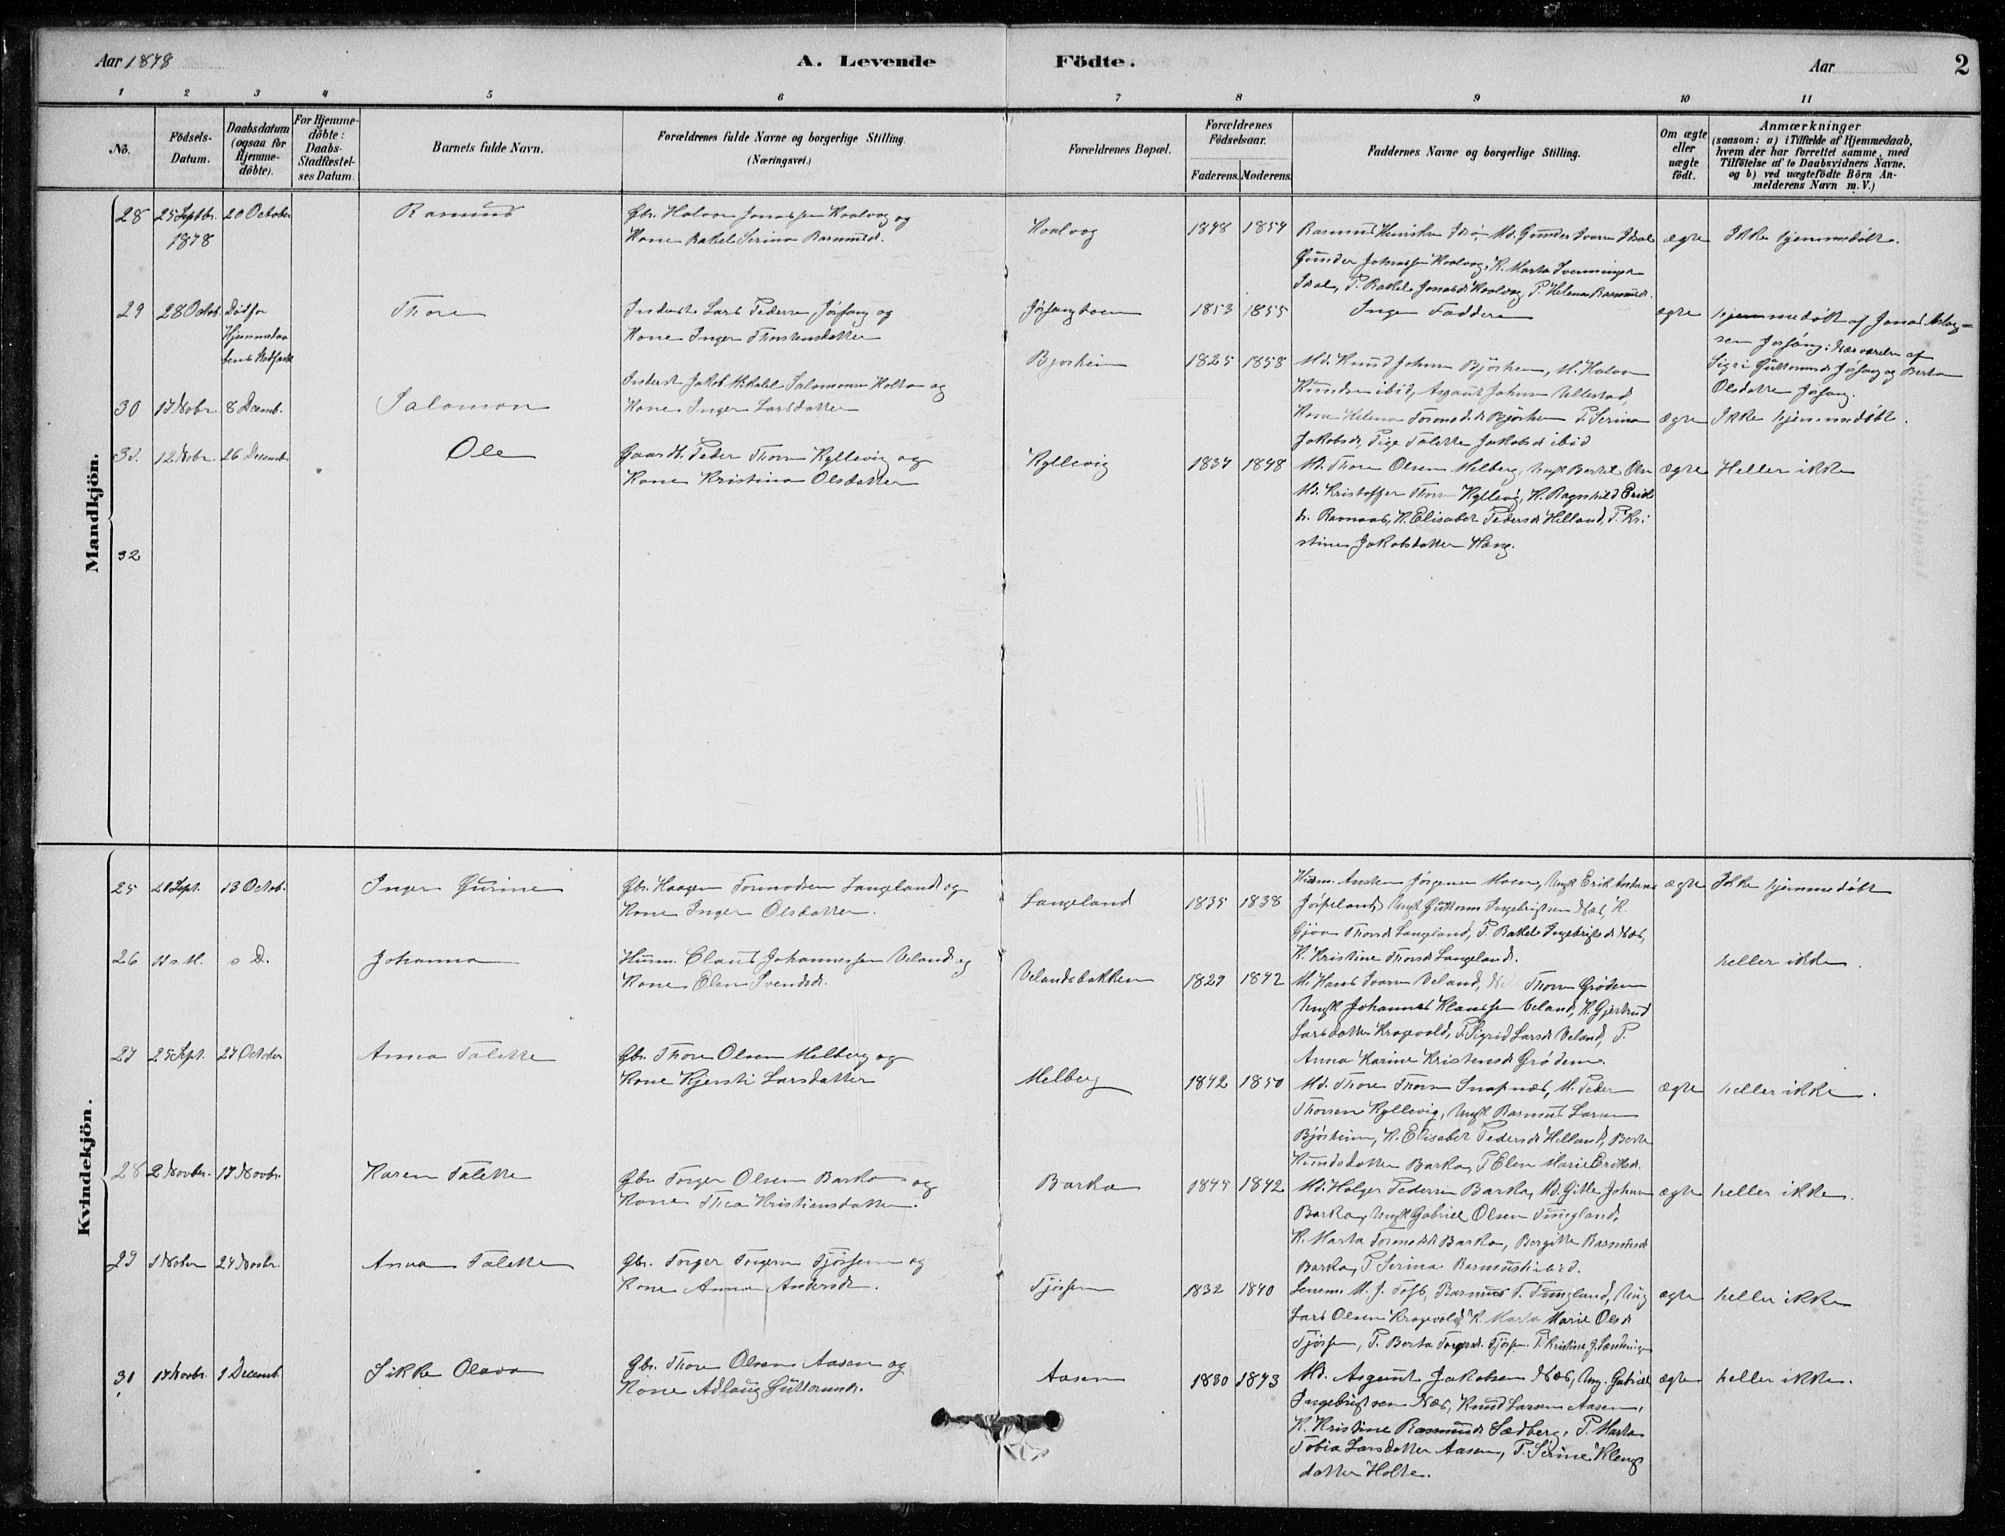 Aar 1878
A. Levende
Födte.
Aar
2
1 2 3 4 5 6 7 8 9 10 11
No.
Födsels-Datum.
Daabsdatum (ogsaa for Hjemme-döbte).
For Hjemme-döbte: Daabs-Stadfæstel-ses Datum.
Barnets fulde Navn.
Forældrenes fulde Navne og borgerlige Stilling.
(Næringsvei.)
Forældrenes Bopæl.
Forældrenes Födselsaar.
Faderens. Moderens.
Faddernes Navne og borgerlige Stilling.
Om ægte eller uægte födt.
Anmærkninger
(saasom: a) i Tilfælde af Hjemmedaab, hvem der har forrettet samme, med Tilföielse af to Daabsvidners Navne, og b) ved uægtefödte Börn An-melderens Navn m. V.)
Mandkjön.
28 25 Septbr. 1878 20 October
Rasmus
Gbr. Halvor Jonassen Kvalvog og
Kone Rakel Serina Rasmusd.
Kvalvog
1848 1854
Rasmus Henriksen, Md. Gunder Ivarsen
Gunder Johnsen Kvalvog, K. Marta
P. Rakel Jonasd. Kvalvog, P. Helena Rasmusd.
ægte
Ikke hjemmedøbt.
29 28 Octob. Død før Hjemmedaabens Stadfæst
Thore
Inderst Lars Pedersen Jøsang og
Kone Inger Thorstensdatter
Jøsangboen
1853 1855
Ingen Faddere
ægte
hjemmedøbt af Jonas Aslag-
sen Jøsang i Nærværelse af
Sigri Guttormsd. Jøsang og Berta
Olsdatter Jøsang.
30 17 Nobr. 8 Decemb.
Salomon
Inderst Jakob Mikael Salomonsen Holta og
Kone Inger Larsdatter
Bjørheim
1825 1858
Md. Knud Johnsen Bjørheim, M. Halvor
Knudsen ibid, Asgaut Johnsen Ullestad,
Kone Helena Tormodsd. Bjørheim P. Serina
Jakobsd, Pige Talette Jakobsd ibid
ægte
Ikke hjemmedøbt.
31. 12 Nobr. 26 Decemb.
Ole
Gaard. Peder Thorsen Kyllevig og
Kone Kristina Olsdatter
Kyllevig
1834 1848
Md. Thore Olsen Melberg, Ungk. Bertel Olsen
Md. Kristoffer Thorsen Kyllevig, K. Ragnhild Eriks
d. Ravnaas, K. Elisabet Pedersd. Helland, P. Kri
stine Jakobsdatter Haug.
ægte
Heller ikke
32
Kvindekjön.
25 20 Sept. 13 Octob.
Inger Gurine
Gbr. Haagen Tormodsen Langeland og
Kone Inger Olsdatter.
Langeland
1835 1838
Husm. Austen Jørgensen Moen, Ungk. Erik Andersen
Jøsneland, Ungk. Guttorm Ingebrigtsen Næs, K.
Gjoa Thorsd. Langeland, P. Rakel Ingebrigtsd. Næs,
K. Kristine Thorsd. Langeland.
ægte
Ikke hjemmedøbt
26 s. D.
Johanna
Husm. Claus Johannessen Veland og
Kone Elen Svendsd.
Velandsbakken
1829 1842
M. Hans Ivarsen Veland, Thorsen Grødem
Ungk. Johannes Klaussen Veland, K. Gjertrud
Larsdatter Kragevold, P. Sigrid Larsd. Veland, P.
Anna Karine Kristensd. Grødem.
heller ikke.
27 25 Sept. 27 October
Anna Talette
Gbr. Thore Olsen Melberg og
Kone Kjersti Larsdatter
Melberg
1842 1850
Md. Thore Thorsen Snapnæs, M. Peder
Thorsen Kyllevig, Ungk. Rasmus Larsen
Bjørheim, K. Elisabet Pedersd. Helland, Berte
Knudsdatter Barka, P. Elen Marie Eriksd.
ægte
heller ikke.
28 2 Novbr. 17 Novbr.
Karen Talette
Gbr. Torger Olsen Barka og
Kone Thea Kristiansdatter.
Barka
1845 1842
Md. Holger Pedersen Barka, Md. Gitle Johnsen
Barka, Ungk. Gabriel Olsen Tungland,
K. Marta Tormodsd. Barka, Bergitte Rasmusd.
Barka, P. Serina Rasmusd. ibid.
ægte
heller ikke.
29 1 Nober 24 Novbr.
Anna Talette
Gbr. Torger Torgersen Tjøssem og
Kone Anna Andersd.
Tjøssem
1832 1840
M. J. Toft, Rasmus T. Tungland, Ung
Lars Olsen Kragevold, K. Marta Marie Olsd.
Tjøssem, P. Berta Torgersd. Tjøssem P. Kristine J.
ægte
heller ikke
30 17 Novbr. 1 Decemb.
Sikke Olava
Gbr. Thore Olsen Aasen og
Kone Adlaug Guttormsd.
Aasen
1830 1843
Md. Asgaut Jakobsen Næs, Ung. Gabriel
Ingebrigtsen Næs, Knud Larsen Aasen,
K. Kristine Rasmusd. Sædberg, P. Marta
Tobia Larsdatter Aasen, P. Serine Klengs
datter Holte.
ægte
heller ikke.